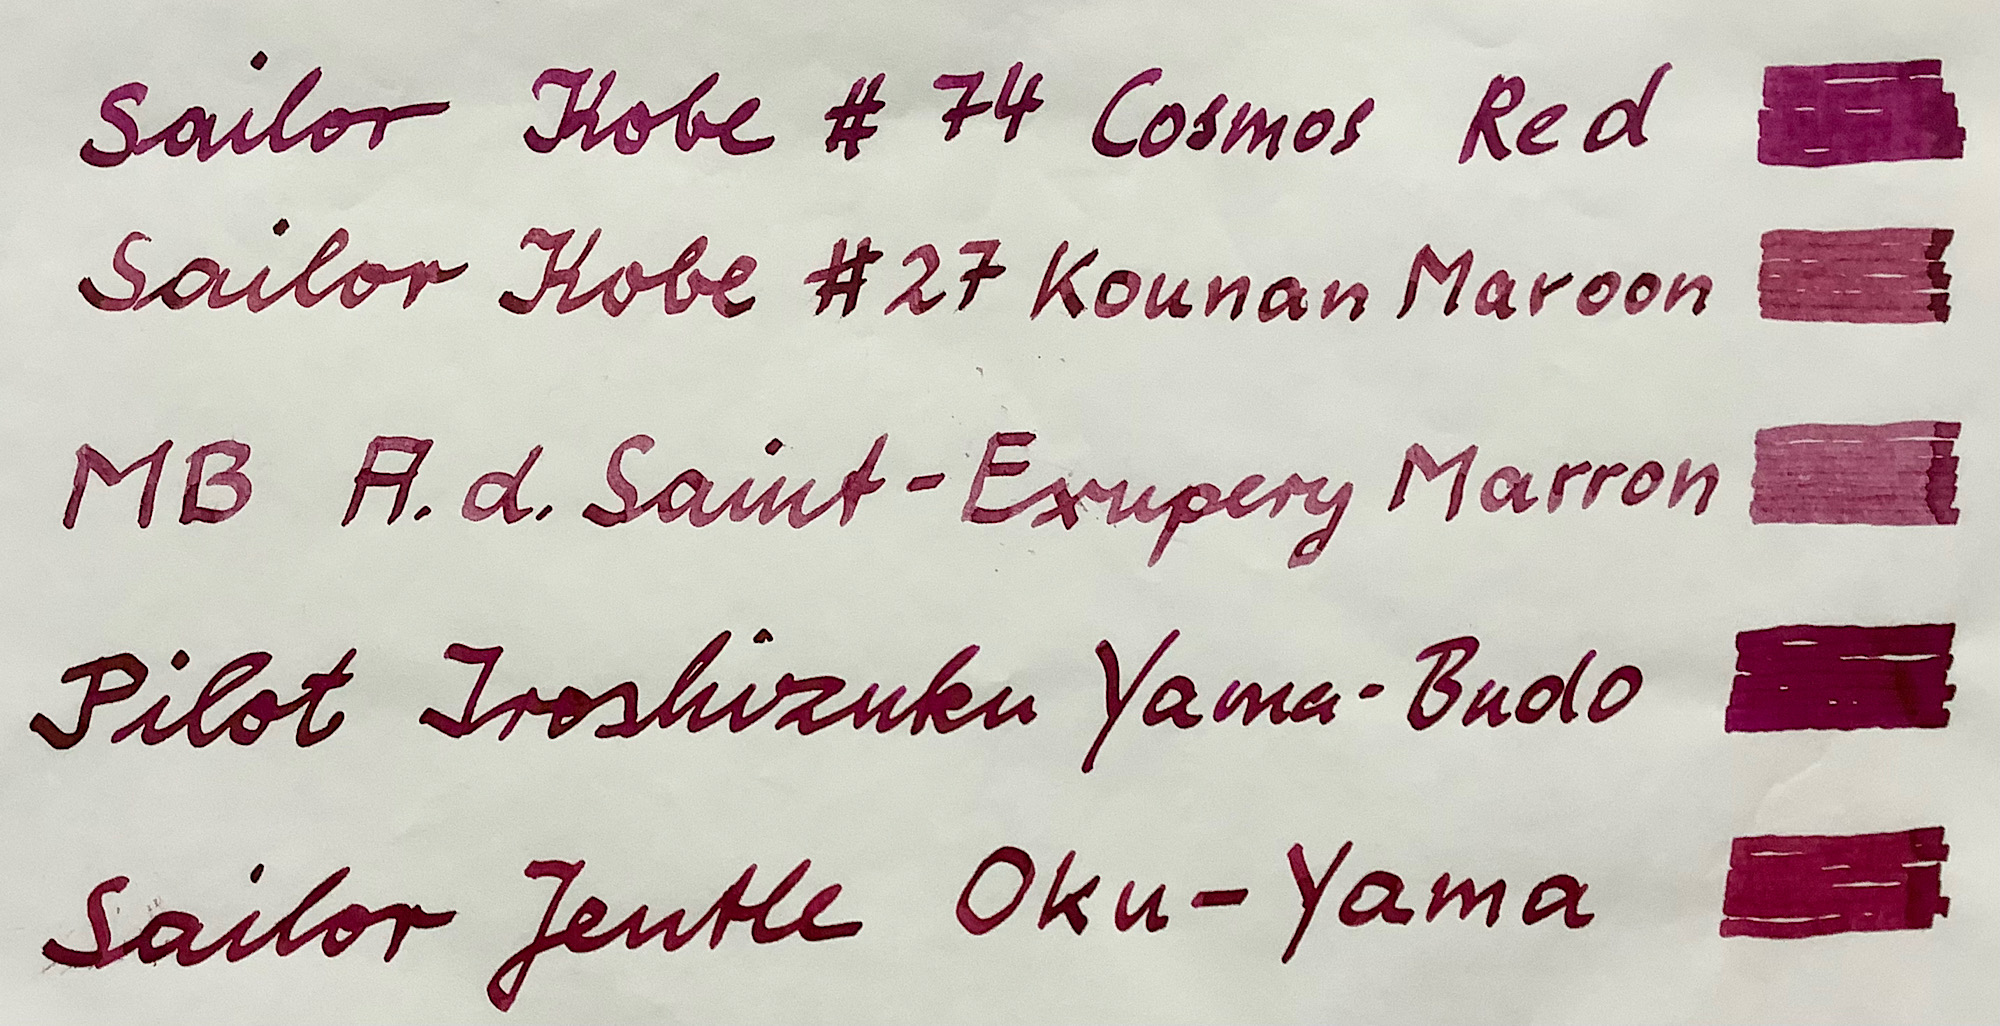 Sailor Kobe # 74 Cosmos Red
Sailor Kobe #27 Kounan Maroon
MB A. d. Saint-Exupery Marron
Pilot Iroshizuku Yama-Budo
Sailor Jentle Oku-Yama